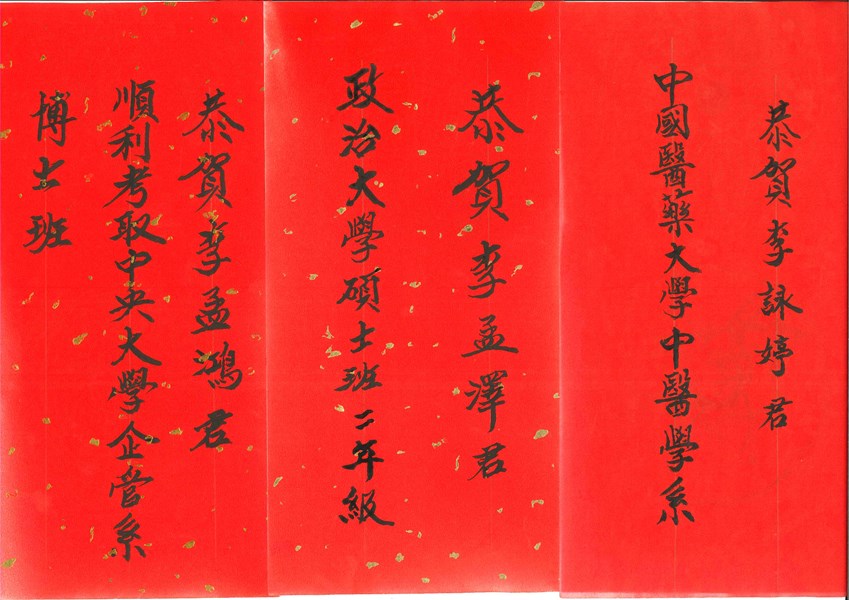 恭賀李詠婷君
中國醫藥大學中醫學系
恭賀李孟澤君
政治大學碩士班二年級
恭賀李孟鴻君
順利考取中央大學企管系
博士班